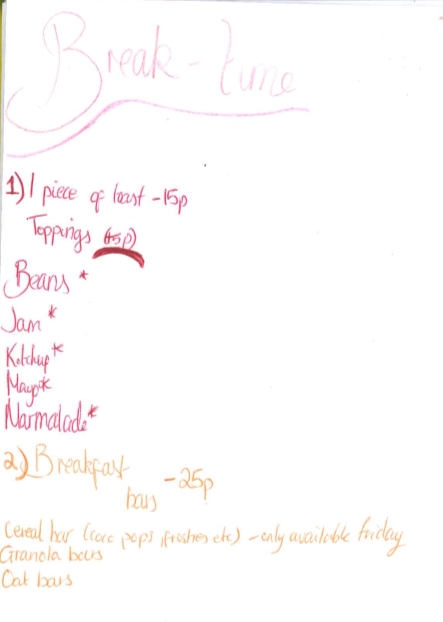 Break-time
1) 1 piece of toast - 15p
Toppings (+5p)
Beans *
Jam *
Ketchup *
Mayo *
Marmalade *
2) Breakfast bars - 25p
Cereal bar (coco pops, frosties etc) - only available friday
Granola bars
Oat bars